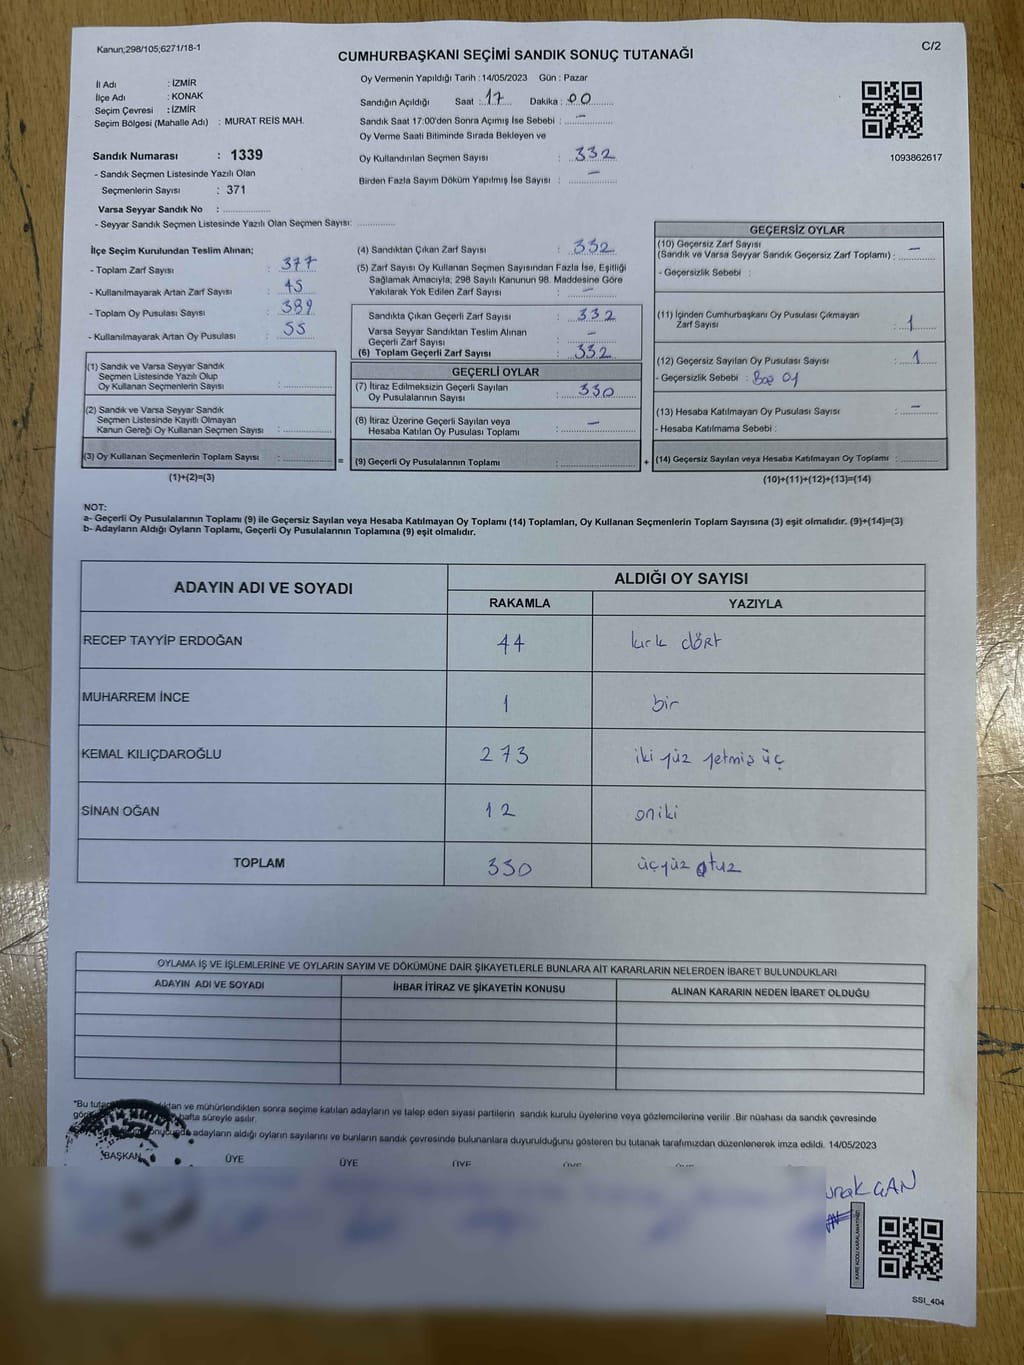 Kanun;298/105;6271/18-1
C/2
CUMHURBAŞKANI SEÇİMİ SANDIK SONUÇ TUTANAĞI
İl Adı : İZMİR
İlçe Adı : KONAK
Seçim Çevresi : İZMİR
Seçim Bölgesi (Mahalle Adı) : MURAT REİS MAH.
Oy Vermenin Yapıldığı Tarih : 14/05/2023 Gün : Pazar
Sandığın Açıldığı Saat : 17 Dakika : 00
Sandık Saat 17:00'den Sonra Açımış İse Sebebi : –
Oy Verme Saati Bitiminde Sırada Bekleyen ve
Oy Kullandırılan Seçmen Sayısı : 332
Birden Fazla Sayım Döküm Yapılmış İse Sayısı : –
1093862617
Sandık Numarası : 1339
- Sandık Seçmen Listesinde Yazılı Olan
Seçmenlerin Sayısı : 371
Varsa Seyyar Sandık No :
- Seyyar Sandık Seçmen Listesinde Yazılı Olan Seçmen Sayısı:
İlçe Seçim Kurulundan Teslim Alınan;
- Toplam Zarf Sayısı : 377
- Kullanılmayarak Artan Zarf Sayısı : 45
- Toplam Oy Pusulası Sayısı : 389
- Kullanılmayarak Artan Oy Pusulası : 55
(1) Sandık ve Varsa Seyyar Sandık
Seçmen Listesinde Yazılı Olup
Oy Kullanan Seçmenlerin Sayısı :
(2) Sandık ve Varsa Seyyar Sandık
Seçmen Listesinde Kayıtlı Olmayan
Kanun Gereği Oy Kullanan Seçmen Sayısı :
(3) Oy Kullanan Seçmenlerin Toplam Sayısı :
(1)+(2)=(3)
(4) Sandıktan Çıkan Zarf Sayısı : 332
(5) Zarf Sayısı Oy Kullanan Seçmen Sayısından Fazla İse, Eşitliği
Sağlamak Amacıyla; 298 Sayılı Kanunun 98. Maddesine Göre
Yakılarak Yok Edilen Zarf Sayısı : –
Sandıkta Çıkan Geçerli Zarf Sayısı : 332
Varsa Seyyar Sandıktan Teslim Alınan
Geçerli Zarf Sayısı : –
(6) Toplam Geçerli Zarf Sayısı : 332
GEÇERLİ OYLAR
(7) İtiraz Edilmeksizin Geçerli Sayılan
Oy Pusulalarının Sayısı : 330
(8) İtiraz Üzerine Geçerli Sayılan veya
Hesaba Katılan Oy Pusulası Toplamı : –
= (9) Geçerli Oy Pusulalarının Toplamı :
GEÇERSİZ OYLAR
(10) Geçersiz Zarf Sayısı
(Sandık ve Varsa Seyyar Sandık Geçersiz Zarf Toplamı) : –
- Geçersizlik Sebebi :
(11) İçinden Cumhurbaşkanı Oy Pusulası Çıkmayan
Zarf Sayısı : 1
(12) Geçersiz Sayılan Oy Pusulası Sayısı : 1
- Geçersizlik Sebebi : Boş oy
(13) Hesaba Katılmayan Oy Pusulası Sayısı : –
- Hesaba Katılmama Sebebi :
+ (14) Geçersiz Sayılan veya Hesaba Katılmayan Oy Toplamı :
(10)+(11)+(12)+(13)=(14)
NOT:
a- Geçerli Oy Pusulalarının Toplamı (9) ile Geçersiz Sayılan veya Hesaba Katılmayan Oy Toplamı (14) Toplamları, Oy Kullanan Seçmenlerin Toplam Sayısına (3) eşit olmalıdır. (9)+(14)=(3)
b- Adayların Aldığı Oyların Toplamı, Geçerli Oy Pusulalarının Toplamına (9) eşit olmalıdır.
ADAYIN ADI VE SOYADI ALDIĞI OY SAYISI
RAKAMLA YAZIYLA
RECEP TAYYİP ERDOĞAN 44 kırk dört
MUHARREM İNCE 1 bir
KEMAL KILIÇDAROĞLU 273 iki yüz yetmiş üç
SİNAN OĞAN 12 oniki
TOPLAM 330 üçyüz otuz
OYLAMA İŞ VE İŞLEMLERİNE VE OYLARIN SAYIM VE DÖKÜMÜNE DAİR ŞİKAYETLERLE BUNLARA AİT KARARLARIN NELERDEN İBARET BULUNDUKLARI
ADAYIN ADI VE SOYADI İHBAR İTİRAZ VE ŞİKAYETİN KONUSU ALINAN KARARIN NEDEN İBARET OLDUĞU
"Bu ve mühürlendikten sonra seçime katılan adayların ve talep eden siyasi partilerin sandık kurulu üyelerine veya gözlemcilerine verilir .Bir nüshası da sandık çevresinde
hafta süreyle asılır.
adayların aldığı oyların sayılarını ve bunların sandık çevresinde bulunanlara duyurulduğunu gösteren bu tutanak tarafımızdan düzenlenerek imza edildi. 14/05/2023
BAŞKAN ÜYE ÜYE ÜYE ÜYE
CAN
KARE KODU KARALAMAYINIZ!
SSI_404